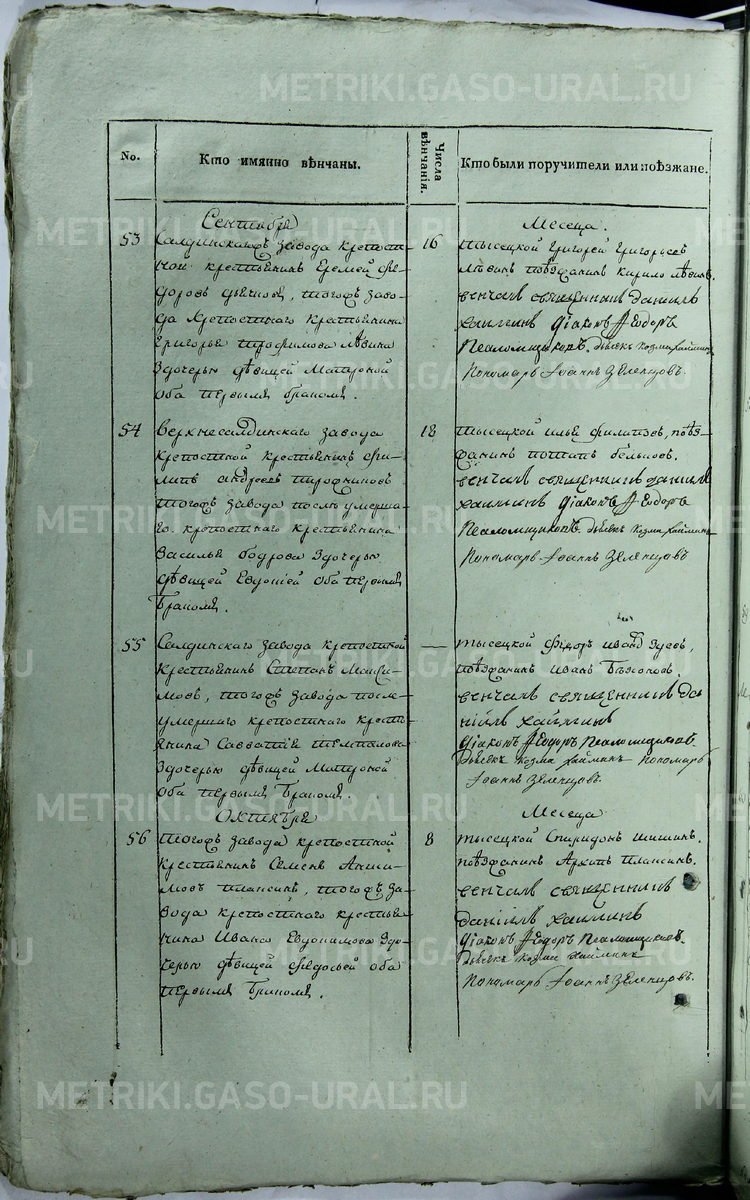 METRIKI.GASO-URAL.RU
No.
Кто имянно вѣнчаны.
Числа вѣнчанія.
Кто были поручители или поѣзжане.
Сентября
Месеца.
53
Салдинскагѡ завода крепост-
ной крестьянинъ Еремей Фе-
доровъ тогоѡ заво-
да крепостнаго крестьянина
Григорья Трофимова
здочерью дѣвицей Матроной
оба первымъ бракомъ.
16
тысецкой Григорей Григорьев
поѣзжанинъ Кирило
венчалъ священникъ Данилъ
Хаилинъ Діаконъ Ѳеодоръ
Псаломщиковъ. дьячекъ Козма Хаилинъ
Пономарь Іоаннъ Зеленцовъ.
54
Верхнесалдинского завода
крепостной крестьянинъ Фи-
липъ андреевъ
тогоѡ завода послѣ умерша-
го крепостнаго крестьянина
Василья Бодрова здочерью
дѣвицей Евдокіей оба первымъ
бракомъ.
18
тысецкой Илья Филипов, поѣз-
жанинъ потапъ бельков.
венчалъ священникъ Данилъ
Хаилинъ Діаконъ Ѳеодоръ
Псаломщиковъ. дьячекъ Козма Хаилинъ
Пономарь Іоаннъ Зеленцовъ
55
Салдинскаго завода крепостной
крестьянинъ Степанъ Макси-
мовъ, тогоѡ завода после
умершаго крепостнаго кресть-
янина Савватія
здочерью дѣвицей Матроной
оба первымъ бракомъ.
—
тысецкой Ѳедоръ
поѣзжанинъ Иванъ
венчалъ священникъ Да-
ніилъ Хаилинъ
Діаконъ Ѳеодоръ Псаломщиковъ.
дьячекъ Козма Хаилинъ Пономарь
Іоаннъ Зеленцовъ.
Октября
Месеца
56
тогоѡ завода крепостной
крестьянинъ Семенъ
Плансинъ, тогоѡ за-
вода крепостнаго крестья-
нина Ивана Евдокимова здо-
черью дѣвицей Федосьей оба
первымъ браком.
8
тысецкой Спиридонъ Шишинъ.
поѣзжанинъ Архипъ Плансинъ.
венчалъ священникъ
Даніилъ Хаилинъ
Діаконъ Ѳеодоръ Псаломщиковъ.
дьячекъ Козма Хаилинъ
Пономарь Іоаннъ Зеленцовъ.